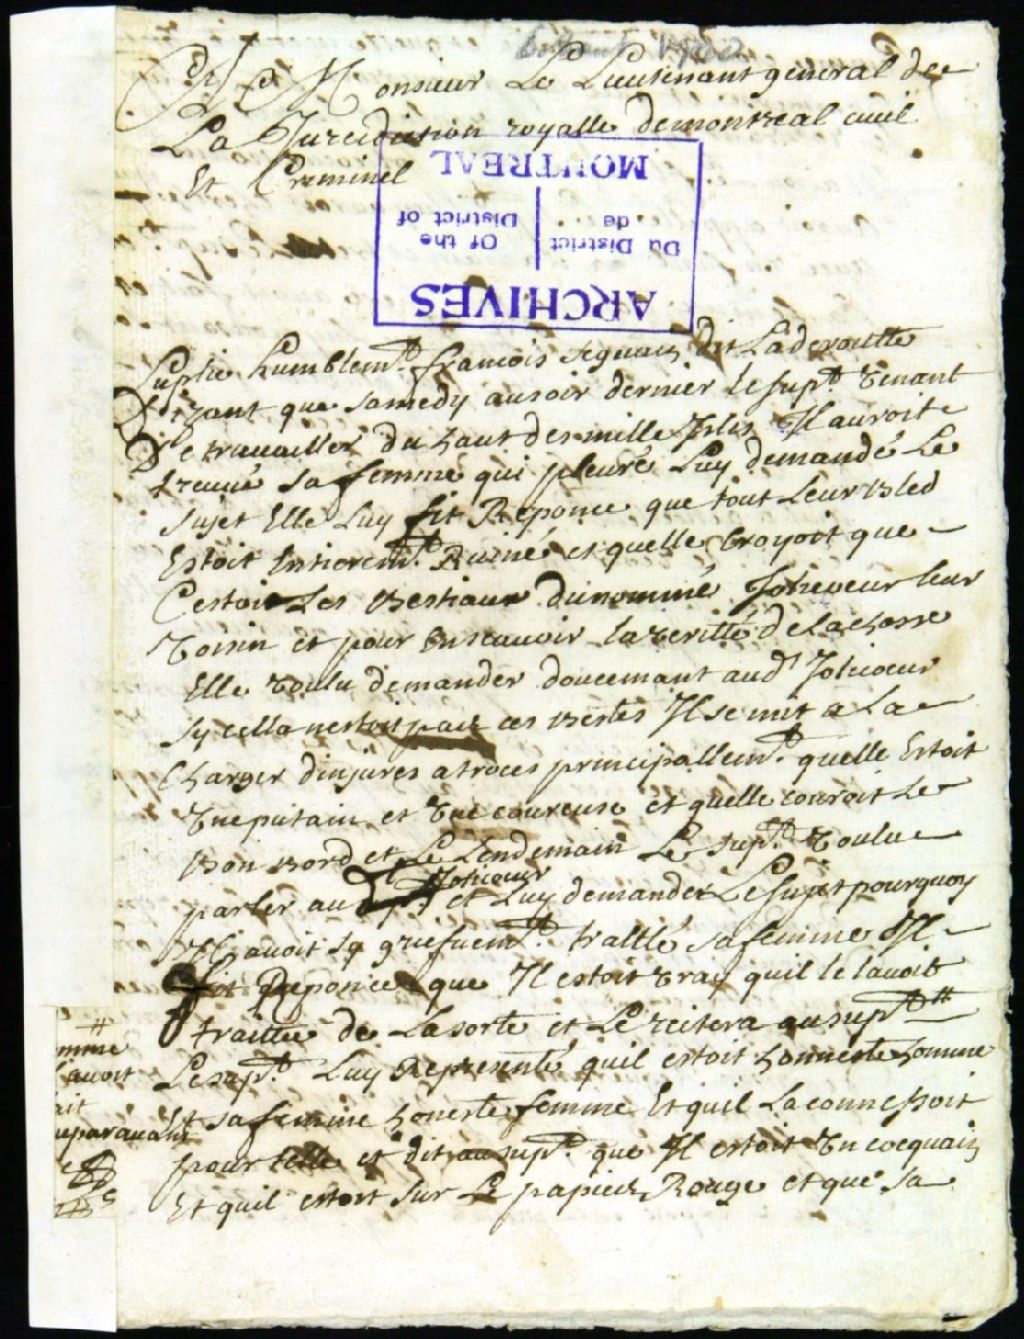 A Monsieur Le Lieutenant general de
La Jurediction royalle de montreal civil
Et Creminel
ARCHIVES
Du District de
Of the District of
MONTREAL
Suplie humblemt. francois seguin dit Laderoutte
Dizant que samedy au soir dernier le supt. Venant
De travailler du haut des mille Isles Il auroit
treuvé sa femme qui pleuré Luy demandé Le
sujet Elle Luy fit Reponce que tout Leur Bled
Estoit Entieremt. Ruiné et quelle Croyoit que
Cestoit Les Bestiaux du nommé Jolicoeur leur
Voisin et pour En scauoir la verillté de la chosse
Elle Voulu demander doucemant aud Jolicoeur
sy cella nestoit pas ces Bestes Il se mit a La
Charger dinjures atroces principallemt. quelle Estoit
Une putain et Une coureuse et quelle couroit Le
Bon Bord et Le Lendemain Le supt. Voulu
parler au Jolicoeur et Luy demander Le sujet pourquoy
Il avoit sy griefuemt. traitté sa femme Il
fit Reponce que Il estoit Vray quil le lavoit
traittée de La sorte et Le reitera au supt. #
Le supt. Luy Represente quil estoit honneste homme
Et sa femme honeste femme Et quil La connessoit
pour telle et dit au supt. que Il estoit Un cocquain
Et quil estoit sur Le papier Rouge et que sa
#
mme
lavoit
ait
uparavant